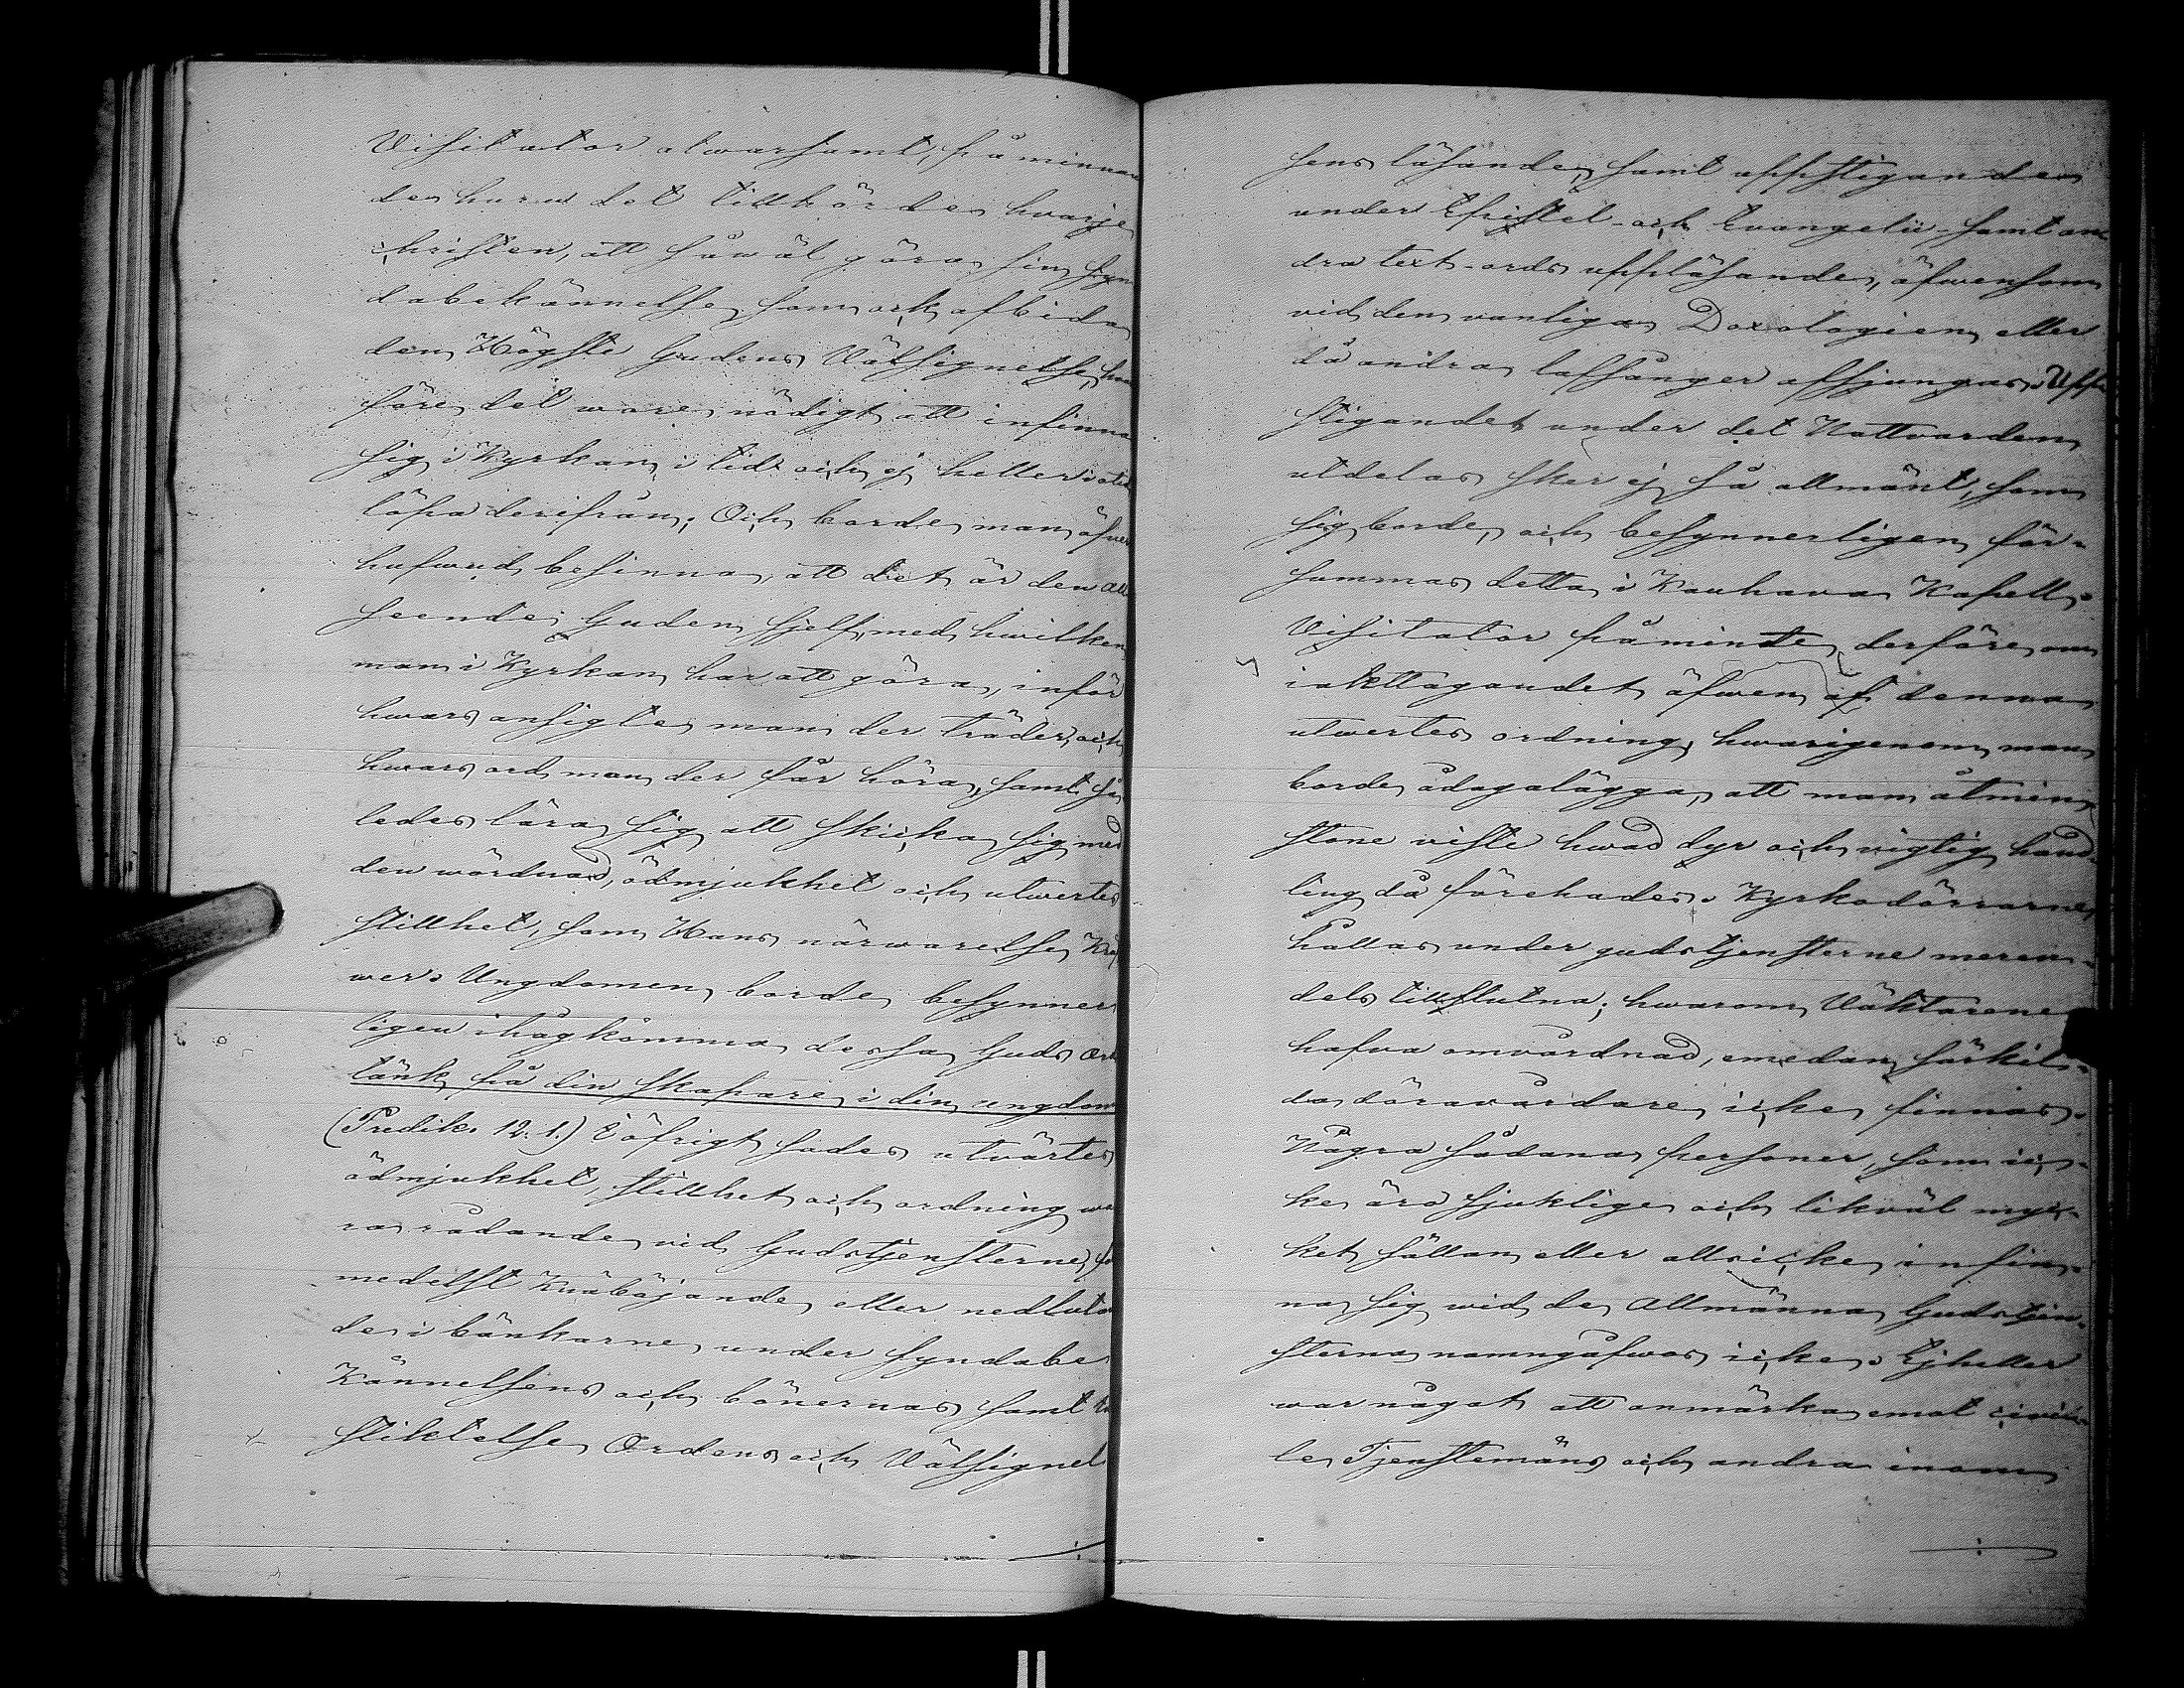 Visitator alwarsamt, påminnan
de huru det tillhörde hvarje
christen, att såwäl göra sin syn
dabekännelse, som ock afbida
den Högste Gudens Välsignelse, hwar
före det wore nödigt att infinna
sig i Kyrkan i tid och ej heller i otid
löpa derifrån. Och borde man öfwer
hufwud besinna, att det är den all
seende Guden sjelf, med hwilken
man i Kyrkan har att göra, inför
hwars ansigte man der träder, och
hwars ord man der får höra, samt så
ledes lära sig att skicka sig med
den wördnad, ödmjukhet och utwertes
stillhet, som Hans närwarelse kräf
wer. Ungdomen borde besynner
ligen ihågkomma dessa Guds Ord
tänk på din skapare i din ungdom
(Predik. 12. 1.) Efrigt sades utvärtes
ödmjukhet, stillhet och ordning wa
ra rådande vid Gudstjensterne,
medelst Knäböjande eller nedlutan
de i bänkarne under syndabe
kännelsens och bönernas samt In
stiktelse Ordens och Välsignel
sens läsande, samt uppstigande
under Epistel- och Evangelii- samt an
dra text-ords uppläsande, äfwensom
vid den vanliga Doxologien eller
då andra lofsånger afsjungas. Upp
stigandet under det Nattvarden
utdelas sker ej så allmänt, som
sig borde, och besynnerligen för-
summas detta i Kauhava Kapell.
Visitator påminte derföre om
iakttagandet äfwen af denna
utwertes ordning, hwarigenom man
borde ådagalägga, att man åtmin
stone viste hwad dyr och vigtig hand-
ling då förehades. Kyrkodörrarne
hållas under gudstjensterne meren-
dels tillslutna; hwarom Väktarene
hafva omvårdnad, emedan särkil-
da döravårdare icke finnas.
Några sådana personer, som ic-
ke äro sjuklige och likväl myc-
ket sällan eller alls icke infin-
na sig wid de Allmänna Gudstjen-
sterna namngåfwos icke. Ej heller
war något att anmärka emot civi-
le Tjenstemäns och andra inom